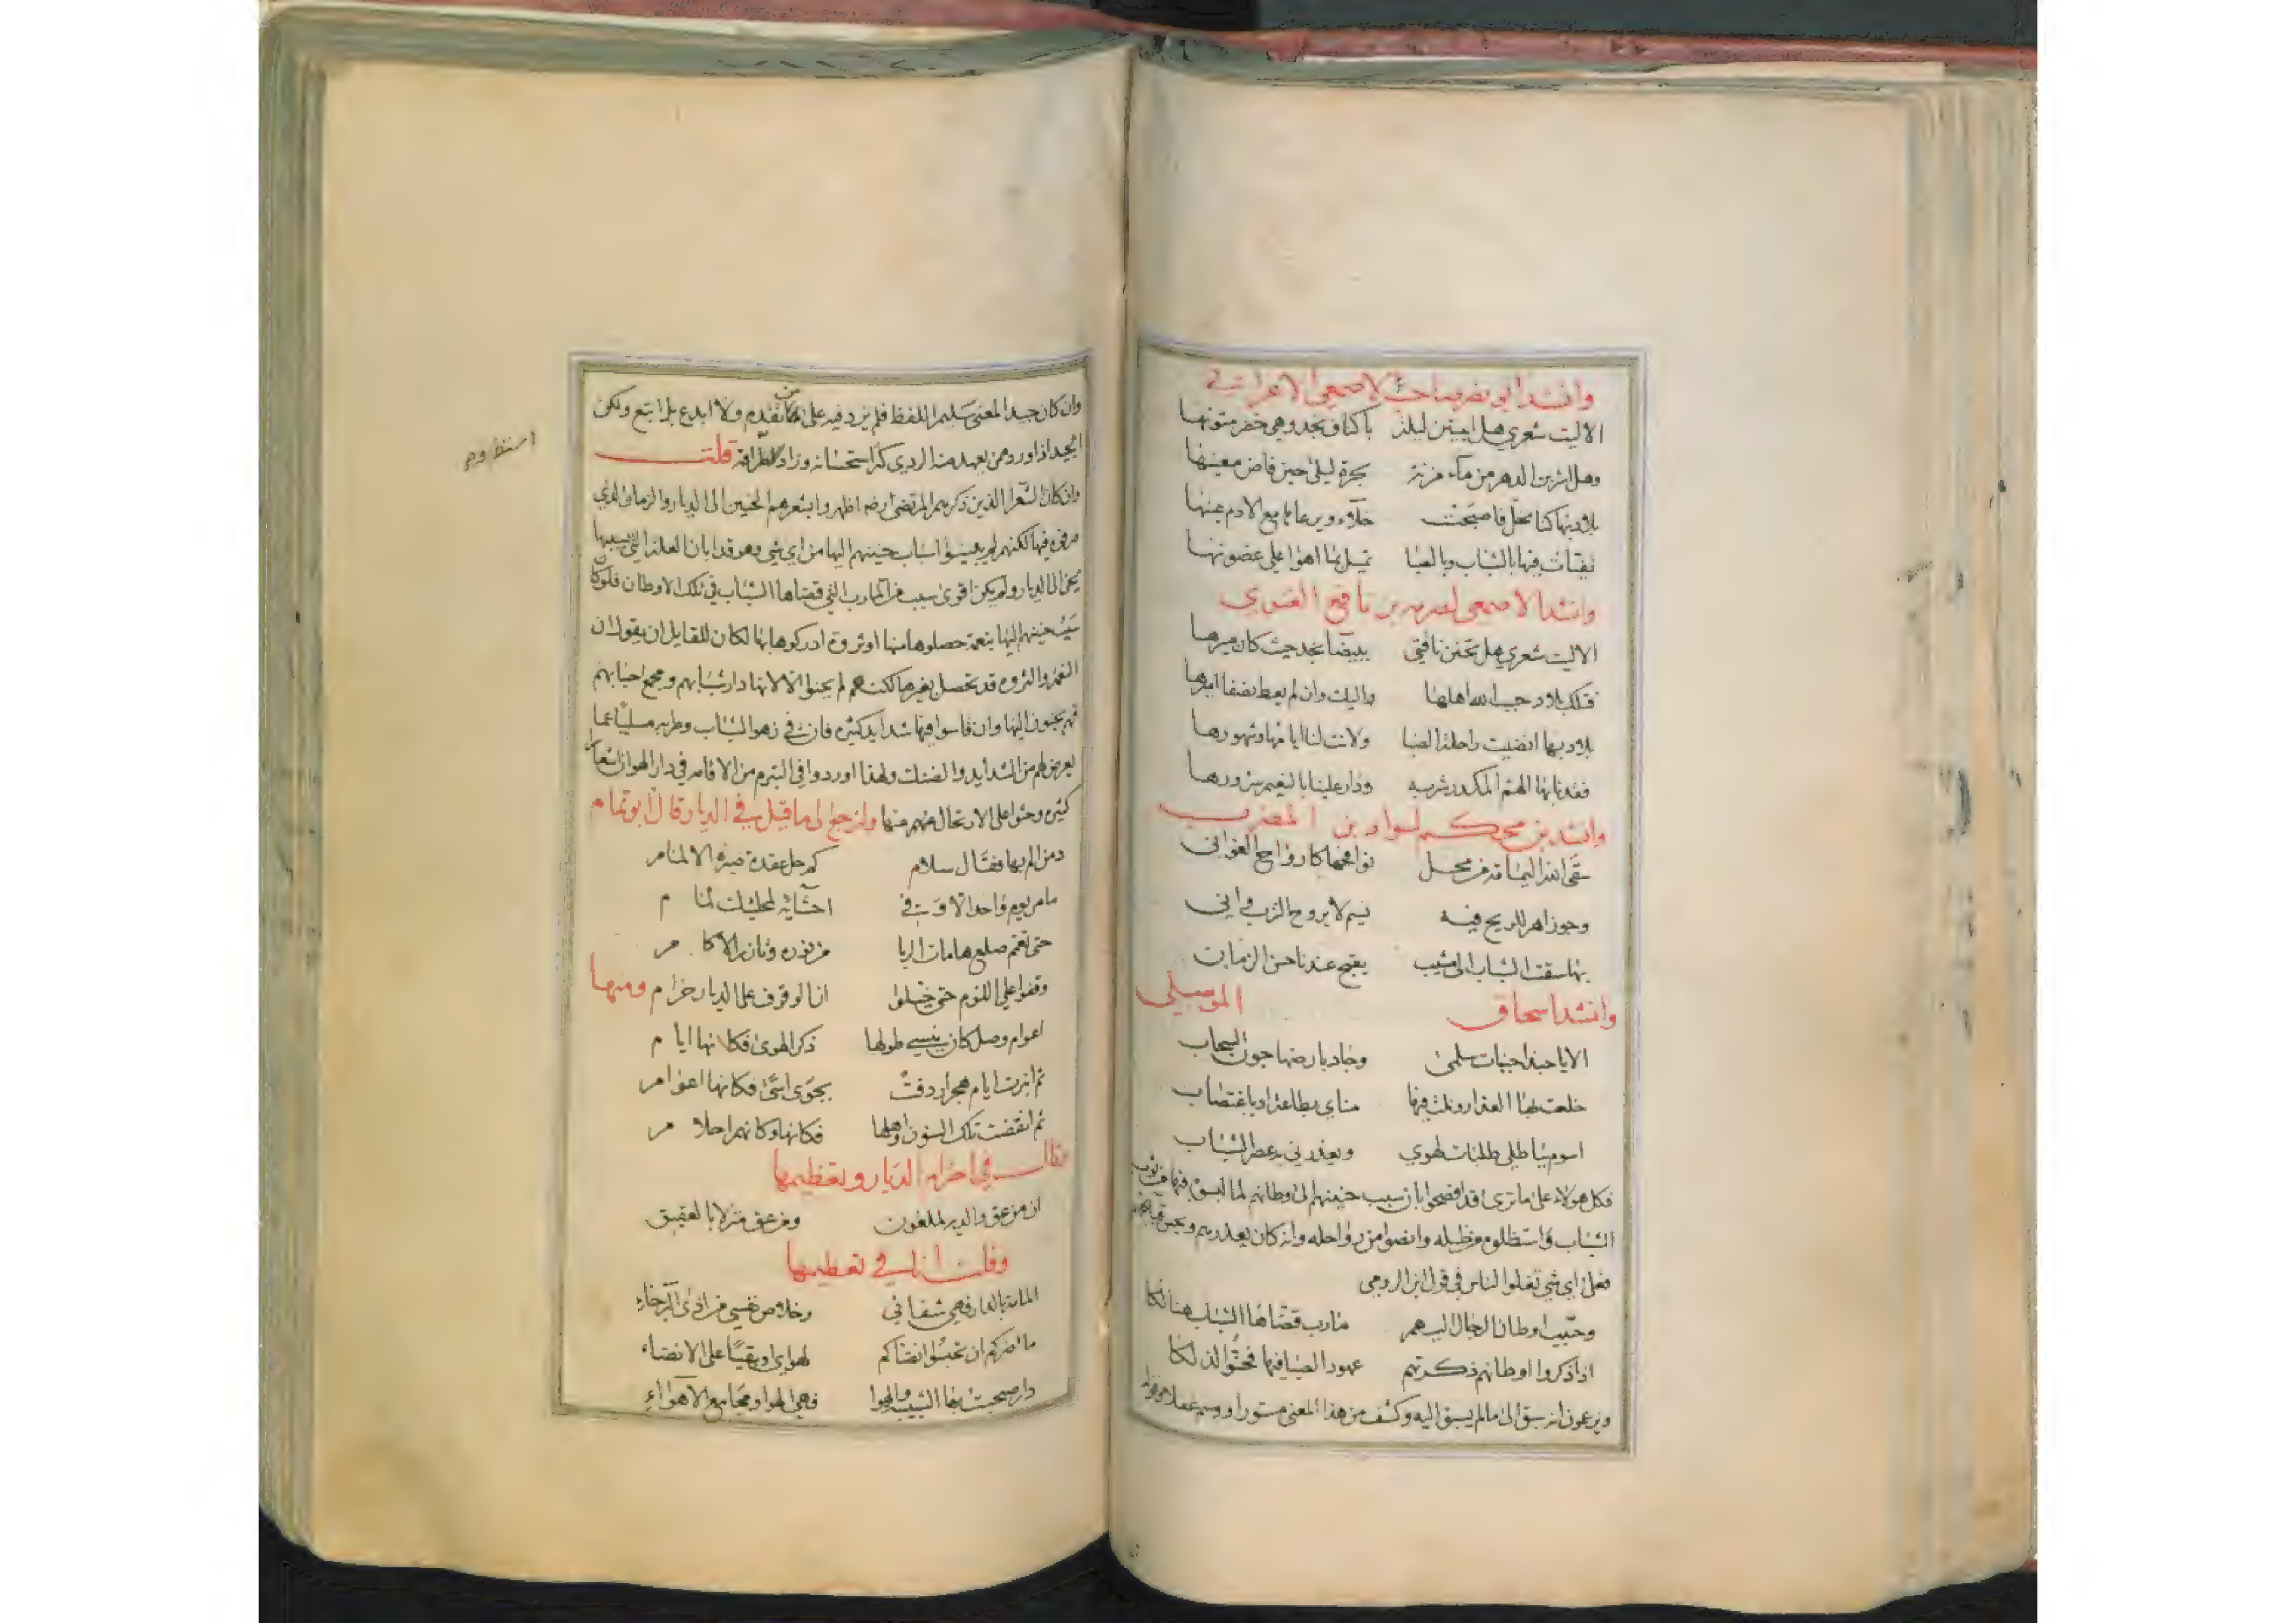 وانشد ابو نصر صاحب الاصمعي لاعرابي
الا ليت شعري هل ابيتن ليلة باكناف نجد وهي خضر متونها
وهل اشربن الدهر من ماء مزنة بحرة ليلى حين فاض معينها
بلاد بها كنا نحل فاصبحت خلاء ويرعاها مع الادم عينها
تفيات فيها بالشباب وبالصبا تميل بما اهوا علي غصونها
وانشد الاصمعي لصدقة بن نافع الغنوي
الا ليت شعري هل تحنن ناقتي ببيضا نجد حيث كان مسيرها
فتلك بلاد حبب الله اهلها واليك وان لم يعط نصفا اميرها
بلاد بها انضيت راحلة الصبا ولانت لنا ايامها وشهورها
فقدنا بها الهم المكدر شربه ودار علينا بالنعيم سرورها
وانشد بن محكم لسوار بن المضرب
سقى الله اليمامة من محل نوافحها كارواح الغواني
وجو زاهر للريح فيه نسيم لا يروح الترب واني
بها سقت الشباب الى مشيب يقبح عندنا حسن الزمان
وانشد اسحاق الموصلي
الا يا حبذا جنبات سلمى وجاد بارضها جون السحاب
خلعت بها العذار ونلت فيها مناي بطاعة او باغتصاب
اسوم بباطلي طلبات لهوي ويعذرني به عصر الشباب
فكل هولاء على ما ترى قد افصحوا بان سبب حنينهم الى وطانهم لما لبسوه فيها من ثوب
الشباب واستظلوه من ظله وانضوا من رواحله وانه كان يعذرهم ويحسن قبايحهم
فعلى اي شي تغلوا الناس في قول ابن الرومي
وحبب اوطان الرجال اليهم مارب قضاها الشباب هنالكا
اذا ذكروا اوطانهم ذكرتهم عهود الصبا فيها فحنوا لذلكا
ويزعمون انه سبق الى ما لم يسبق اليه وكشف من هذا المعنى مستورا ووسم غفلا وقوله
وان كان جيد المعنى سليم اللفظ فلم يزد فيه على من تقدم ولا ابدع بل اتبع ولكن
الجيد اذا ورد ممن يعهد منه الردي كثر استحسانه وزاد استطرافه قلت
وان كان الشعرا الذين ذكرهم المرتضى رضه اظهروا بشعرهم الحنين الى الديار والزمان الذي
مر في فيها لكنهم لم يبينوا اسباب حنينهم اليها من اي شي وهو قد ابان العلة التي بسببها
يحن الى الديار ولم يكن اقوى سبب من المارب التي قضاها الشباب في تلك الاوطان فلو كان
سبب حنينهم اليها بنعمة حصلوها منها او ثروة ادركوها بها لكان للقايل ان يقول ان
النعمة والثروه قد تحصل بغيرها لكنهم لم يحنوا الا لانها دار شبابهم ومجمع احبابهم
فهم يحنون اليها وان قاسوا فيها شدايد كثيره فان في زهو الشباب وطربه مسليا عما
يعرض لهم من الشدايد والضنك ولهذا اوردوا في التبرم من الاقامه في دار الهوان اشعارا
كثيره وحثوا على الارتحال منهم منها ولنرجع الى ما قيل في الديار قال ابو تمام
دمن الم بها فقال سلام كم حل عقدة صبره الالمام
ما مر يوم واحد الا وفي احشائه لمحلتيك غمام
حتى تعمم صلع هامات الربا من نوره وتازر الاكام
وقفوا علي اللوم حتى خيلوا ان الوقوف على الديار حرام ومنها
اعوام وصل كان ينسي طولها ذكر الهوى فكانها ايام
ثم انبرت ايام هجر اردفت بجوى اسى فكانها اعوام
ثم انقضت تلك السنون واهلها فكانها وكانهم احلام
وقال في احترام الديار وتعظيمها
ان من عق والديه لملعون ومن عق منزلا بالعقيق
وقلت انا في تعظيمها
المامة بالدار فهي شفائي وخلاص نفسي من اذى البرحاء
ما ضركم ان تحبسوا انضاكم لهواي او بقيا على الانضاء
دار صحبت بها الشبيبة والهوا وهي الهوا ومجامع الاهواء
استطرفه